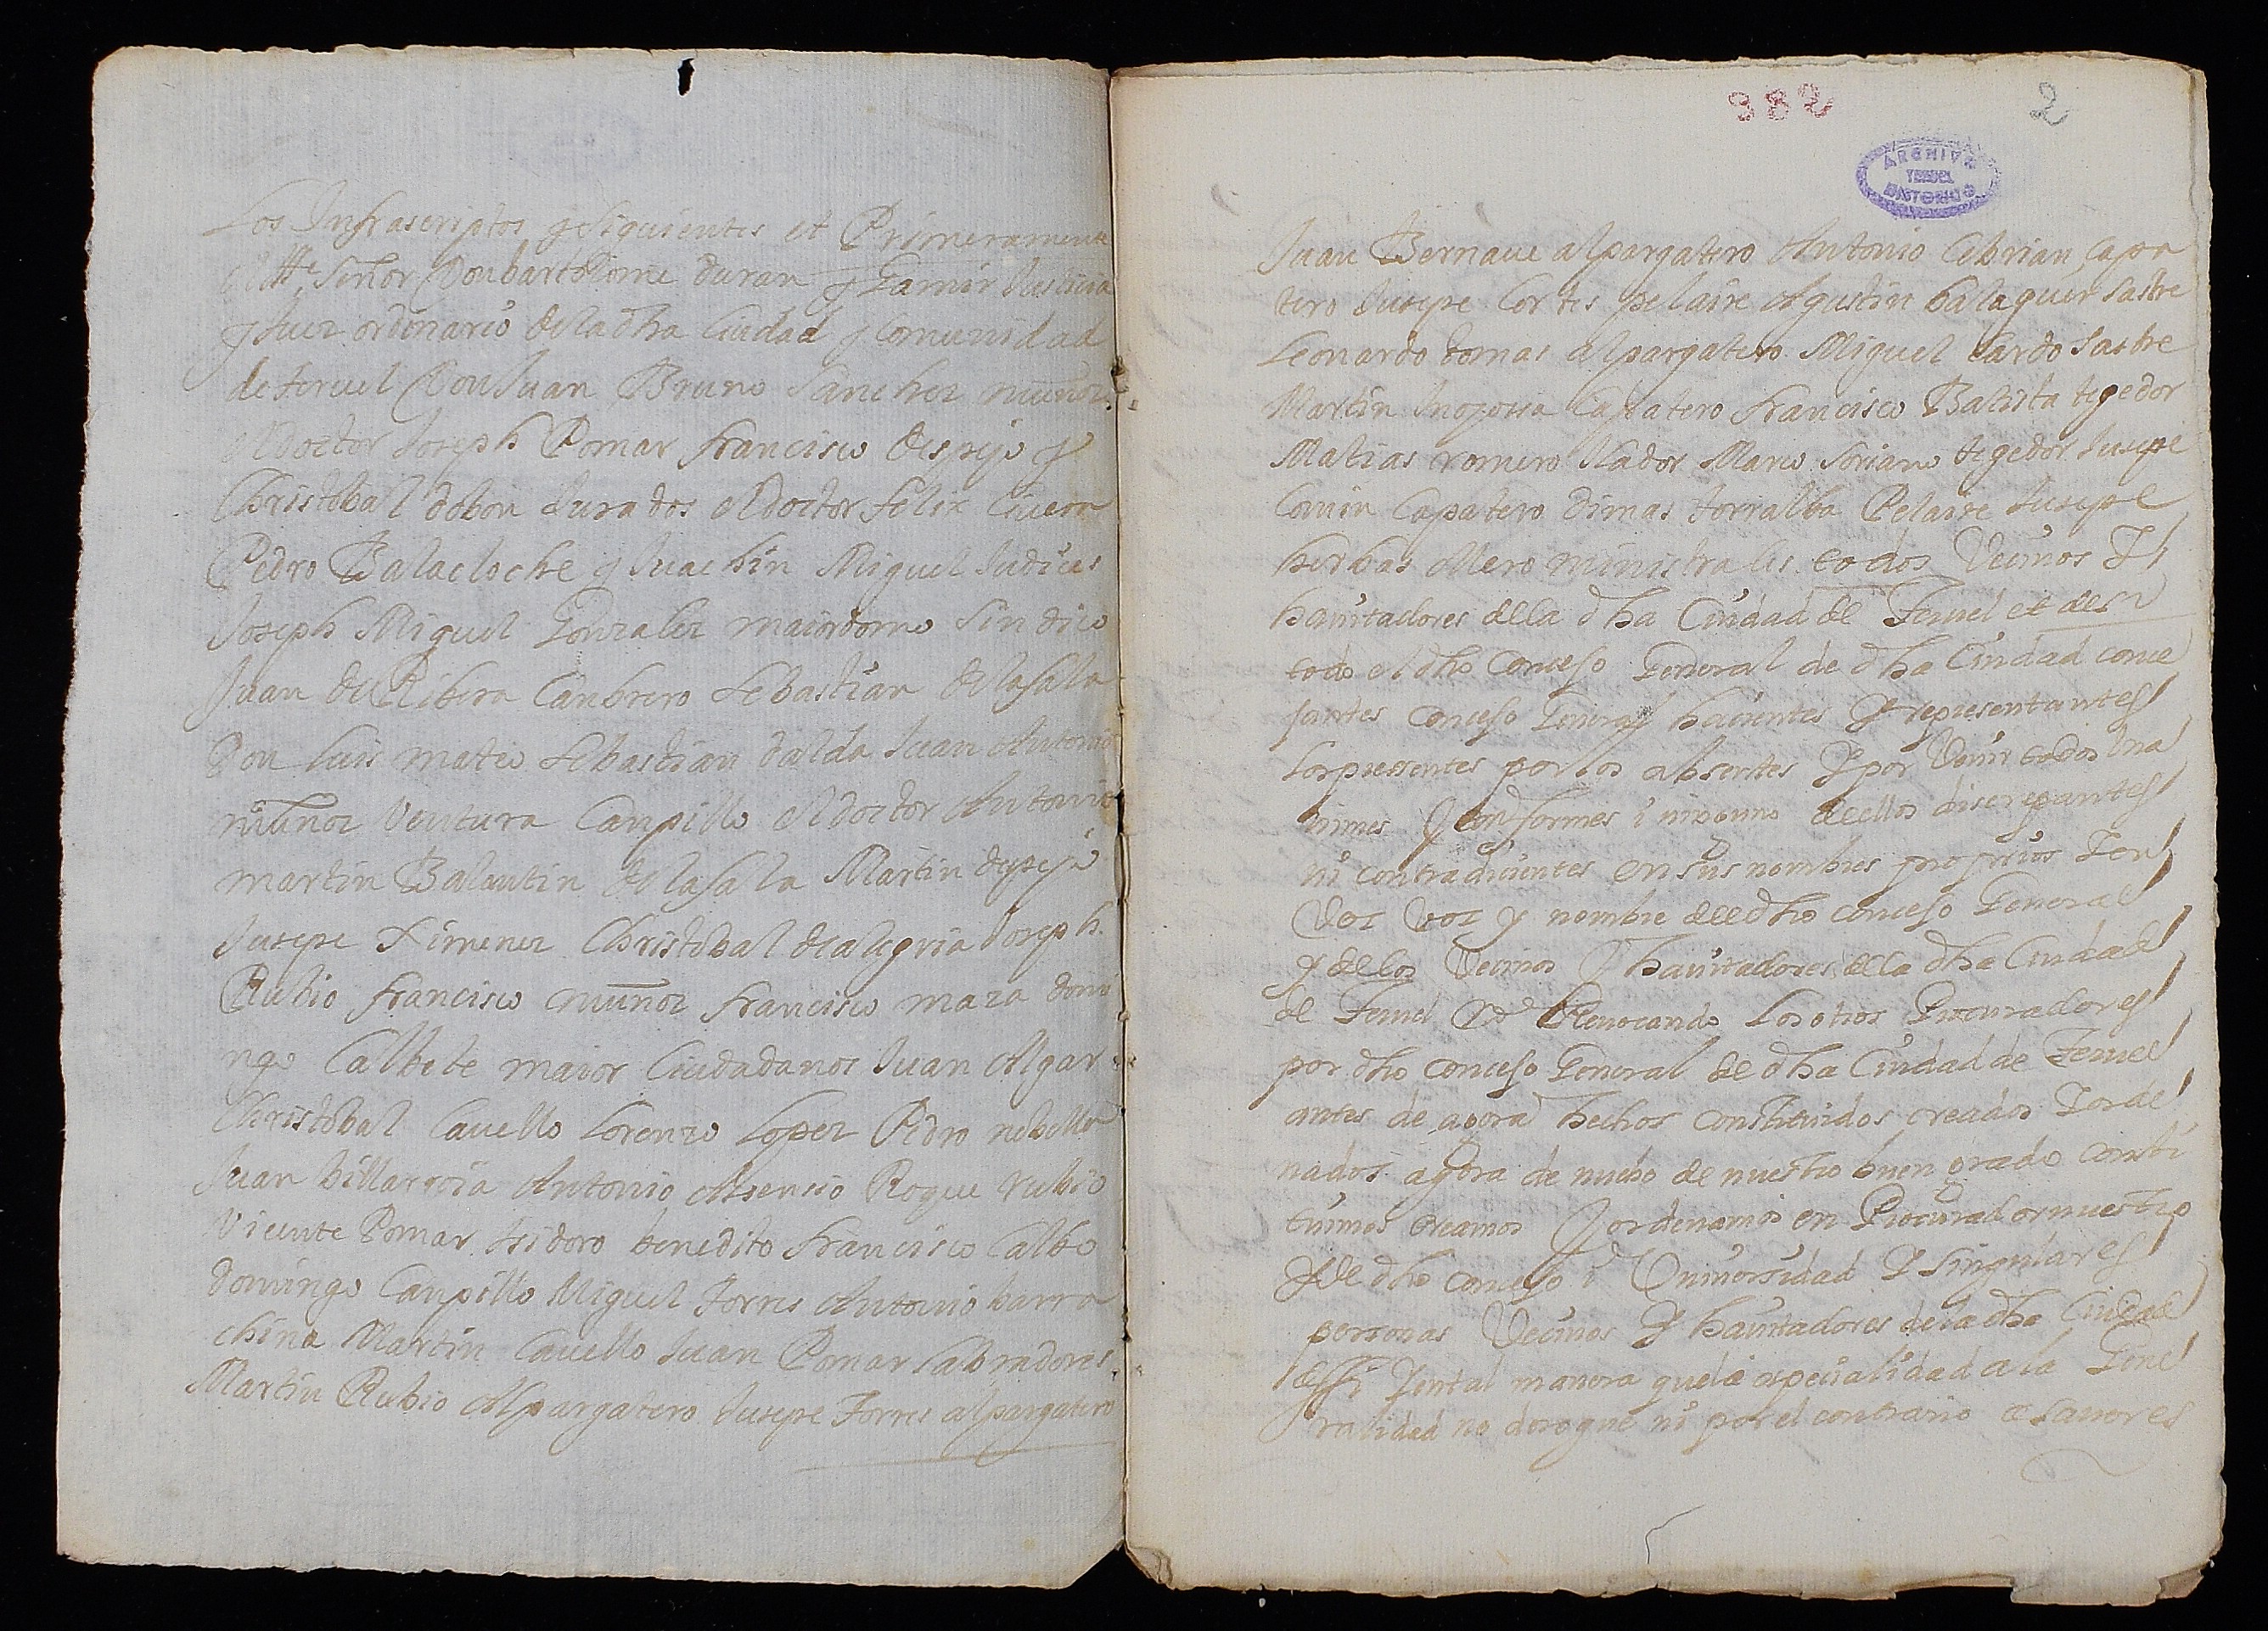 Los Infrascriptos y siguientes et Primeramente
el Ille. Señor Don bartolome duran y Gamir Justicia
y Juez ordinario de la dha Ciudad y Comunidad
de teruel Don Juan Bruno Sanchez munoz
el doctor Joseph Pomar francisco despejo y
Christobal dobon Jurados el doctor felix Ciuera
Pedro Balacloche y Juachin Miguel Judices
Joseph Miguel Gonzalez maiordomo Sindico
Juan de Ribera Canbrero Sebastian de la sala
Don luis mateo Sebastian dalda Juan Antonio
munoz Ventura Canpillo el doctor Antonio
martin Balantin de la sala Martin despejo
Jusepe Ximenez Christobal de alegria Joseph
Rubio francisco munoz francisco maza domi
ngo Calbete maior Ciudadanos Juan Algar
Christobal Cauello Lorenzo Lopez Pedro
Juan billarroia Antonio Asensio Roque rubio
Vicente Pomar Isidoro benedito francisco Calbo
domingo Canpillo Miguel Torres Antonio barra
china Martin Cauello Juan Pomar Labradores
Martin Rubio Alpargatero Jusepe Torres alpargatero
382
2
ARCHIVO
TERUEL
HISTORICO
Juan Bernaue alpargatero Antonio Cebrian Capa
tero Jusepe Cortes pelaire Agustin balaguer sastre
Leonardo tomas alpargatero Miguel sastre
Martin Inojossa Capatero francisco Batista tegedor
Matias romero Marco soriano tegedor Jusepe
Comin Capatero dimas torralba Pelaire Jusepe
herbas Mero ministrales todos Vecinos Y
hauitadores de la dha Ciudad de Teruel et de si
todo el dho concejo General de dha Ciudad conce
jantes concejo General hacientes Y representantes
los pressentes por los absentes Y por Venir todos Una
nimes Y conformes i ninguno de ellos discrepantes
ni contradicientes en sus nombres proprios Y en
Vez voz y nombre de el dho concejo General
y de los Vecinos Y hauitadores de la dha Ciudad
de Teruel Reuocando Los otros Procuradores
por dho concejo General de dha Ciudad de Teruel
antes de agora hechos constituidos creados Y orde
nados agora de nuebo de nuestro buen grado consti
tuimos creamos Y ordenamos en Procurador nuestro
Y de dho concejo i Vniuersidad Y singulares
personas Vecinos Y hauitadores de la dha Ciudad
assi Y en tal manera que la especialidad a la Gene
ralidad no derogue ni por el contrario a sauer es